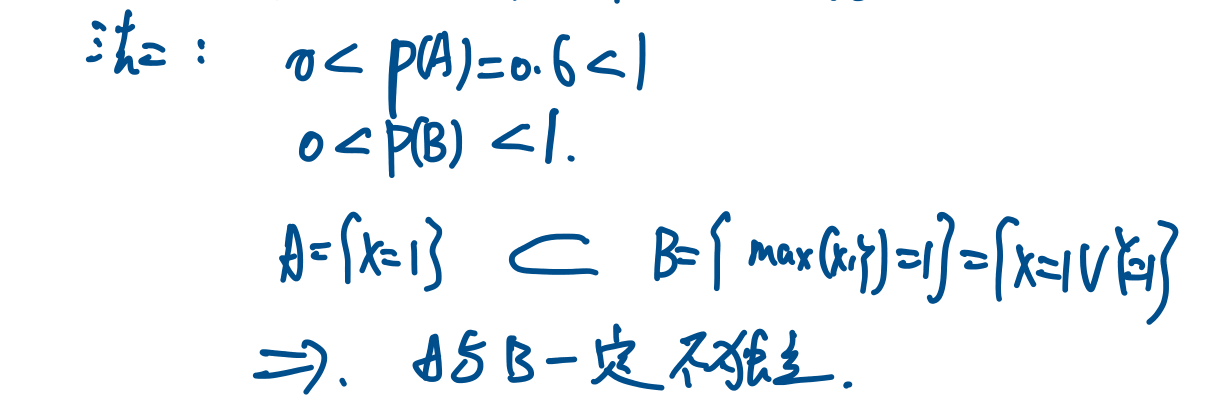 法二: 0 < P(A)=0.6 < 1
0 < P(B) < 1.
A={X=1} ⊂ B={max(X,Y)=1}={X=1∪Y=1}
⇒. A与B一定不独立.